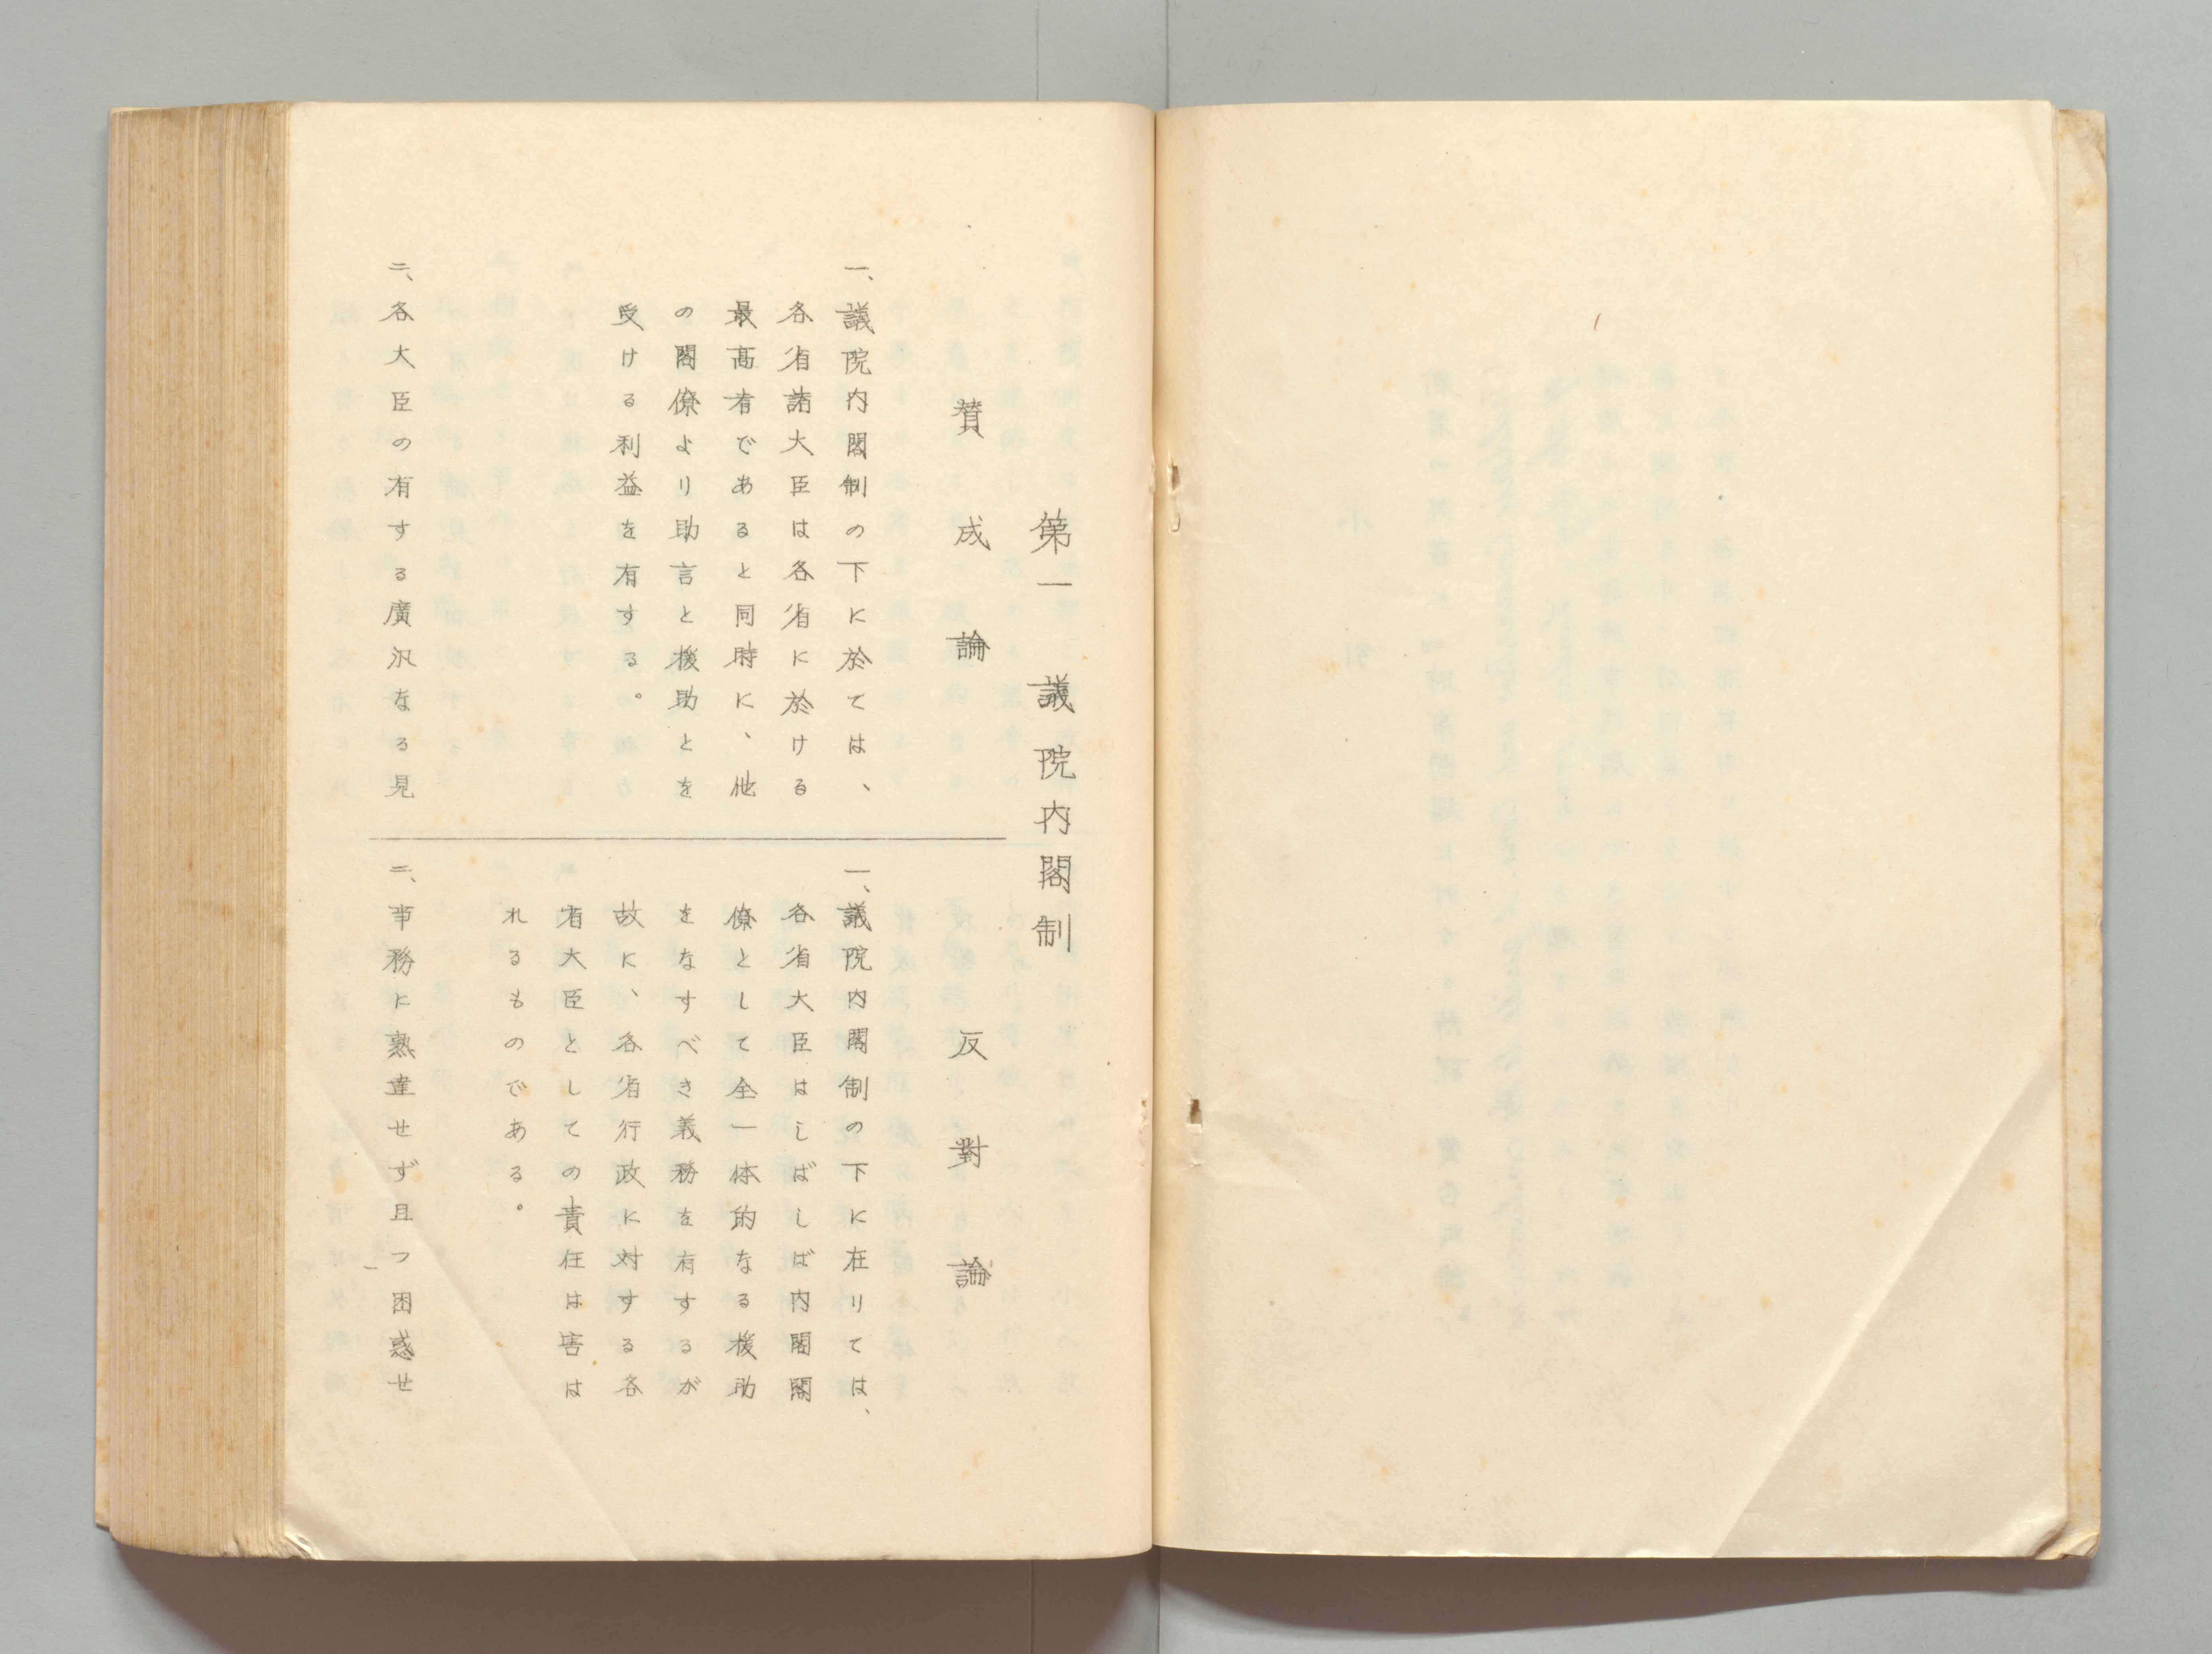 第一 議院内閣制
賛成論
一、議院内閣制の下に於ては、
各省諸大臣は各省に於ける
最高者であると同時に、他
の閣僚より助言と援助とを
受ける利益を有する。
二、各大臣の有する廣汎なる見
反對論
一、議院内閣制の下に在りては、
各省大臣はしばしば内閣閣
僚として全一体的なる援助
をなすべき義務を有するが
故に、各省行政に対する各
省大臣としての責任は害は
れるものである。
二、事務に熟達せず且つ困惑せ